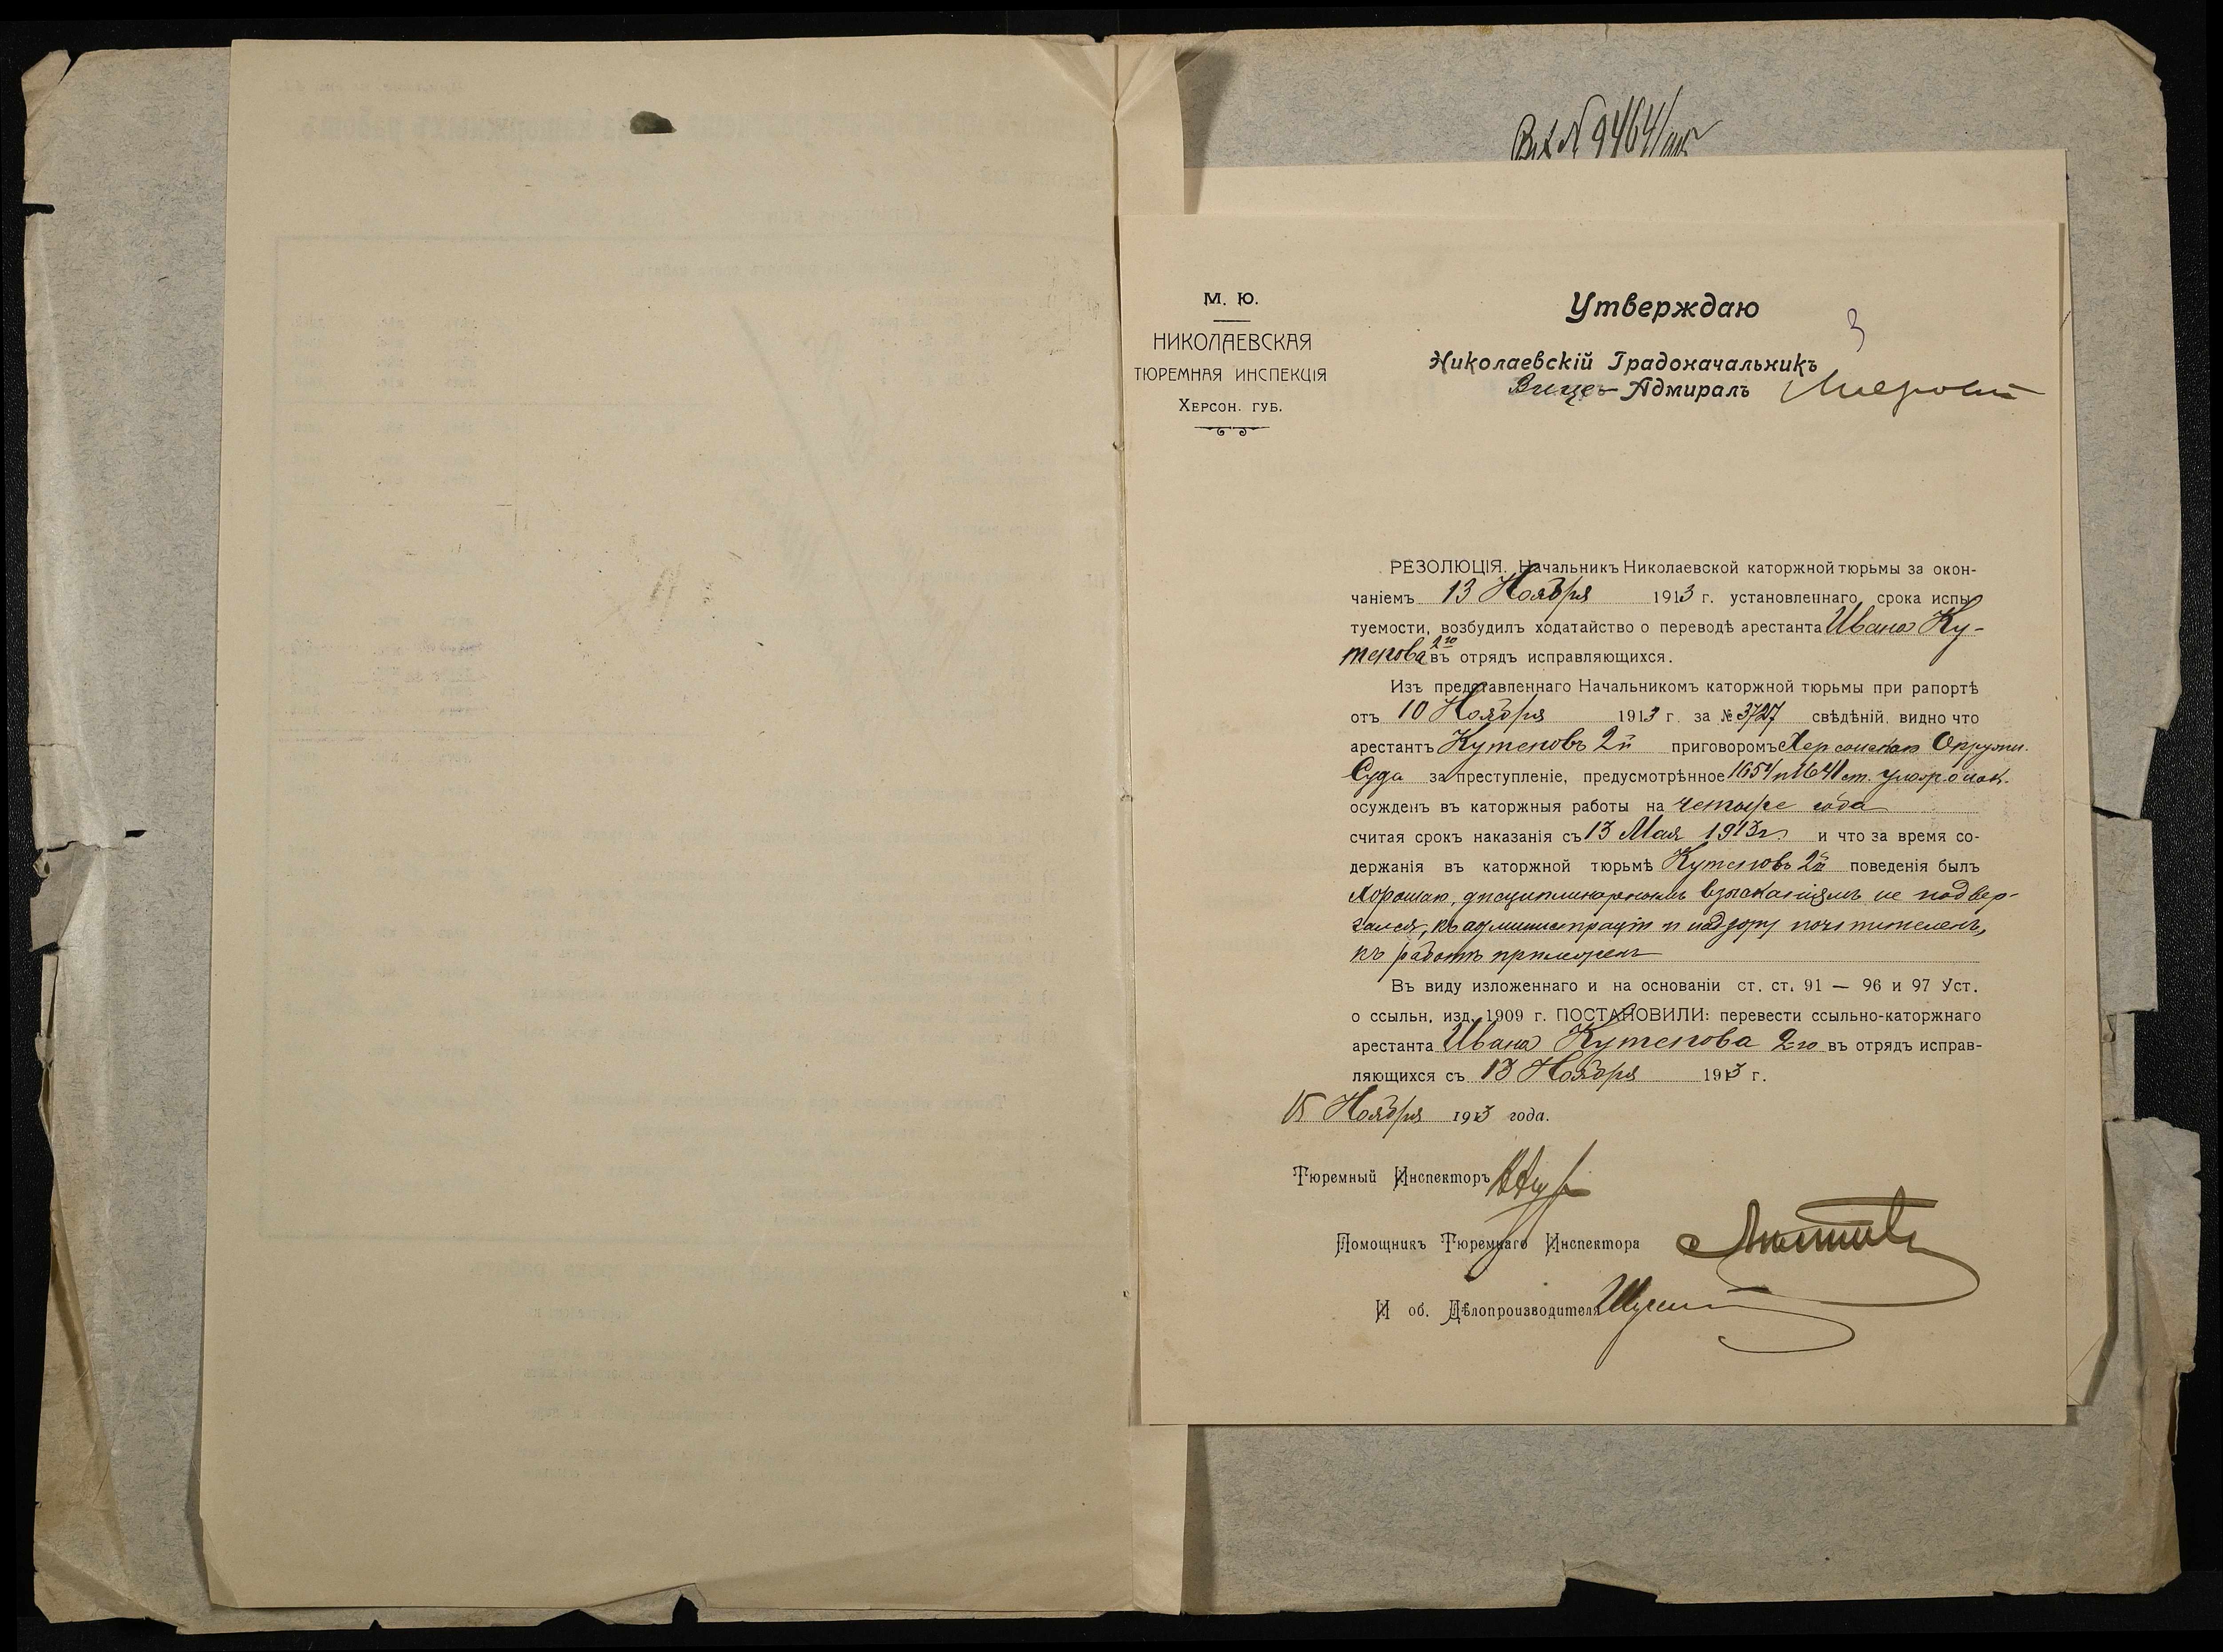 Вх № 9464/
М. Ю.
НИКОЛАЕВСКАЯ
ТЮРЕМНАЯ ИНСПЕКЦІЯ
ХЕРСОН. ГУБ.
Утверждаю
3
Николаевскій Градоначальникъ
Вице-Адмиралъ
РЕЗОЛЮЦІЯ. Начальникъ Николаевской каторжной тюрьмы за окон-
чаніемъ 13 Ноября 1913 г. установленнаго срока испы
туемости, возбудилъ ходатайство о переводѣ арестанта Ивана Ку-
тепова 2го въ отрядъ исправляющихся.
Изъ представленнаго Начальникомъ каторжной тюрьмы при рапортѣ
отъ 10 Ноября 1913 г. за № 3727 свѣдѣній, видно что
арестантъ Кутеповъ 2й приговоромъ Херсонскаго Окружн.
Суда за преступленіе, предусмотрѣнное 1654¹ и 1641 ст. улож. о нак.
осужденъ въ каторжныя работы на четыре года
считая срокъ наказанія съ 13 Мая 1913 г. и что за время со-
держанія въ каторжной тюрьмѣ Кутеповъ 2й поведенія былъ
хорошаго, дисциплинарнымъ взысканіямъ не подвер-
гался, къ администраціи и надзору почтителенъ,
къ работѣ прилеженъ
Въ виду изложеннаго и на основаніи ст. ст. 91 — 96 и 97 Уст.
о ссыльн. изд. 1909 г. ПОСТАНОВИЛИ: перевести ссыльно-каторжнаго
арестанта Ивана Кутепова 2го въ отрядъ исправ-
ляющихся съ 13 Ноября 1913 г.
15 Ноября 1913 года.
Тюремный Инспекторъ
Помощникъ Тюремнаго Инспектора
И об. Дѣлопроизводителя